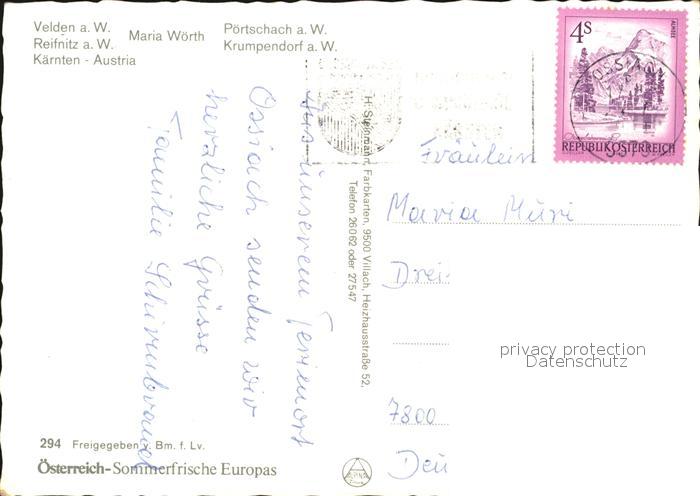 Velden a. W.
Reifnitz a. W.
Kärnten - Austria
Maria Wörth
Pörtschach a. W.
Krumpendorf a. W.
4S
ALMSEE
OSSIACH
REPUBLIK ÖSTERREICH
Aus unserem Ferienort
Ossiach senden wir
herzliche Grüsse
Familie
H. Steinmann, Farbkarten, 9500 Villach, Heizhausstraße 52,
Telefon 26062 oder 27547
Fräulein
Maria Müri
Drei
7800
Deu
privacy protection
Datenschutz
294 Freigegeben v. Bm. f. Lv.
Österreich-Sommerfrische Europas